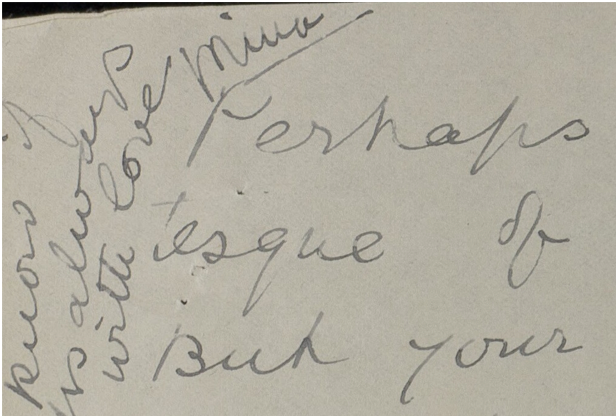 Perhaps
esque of
But your
know
as always
with love
Mina